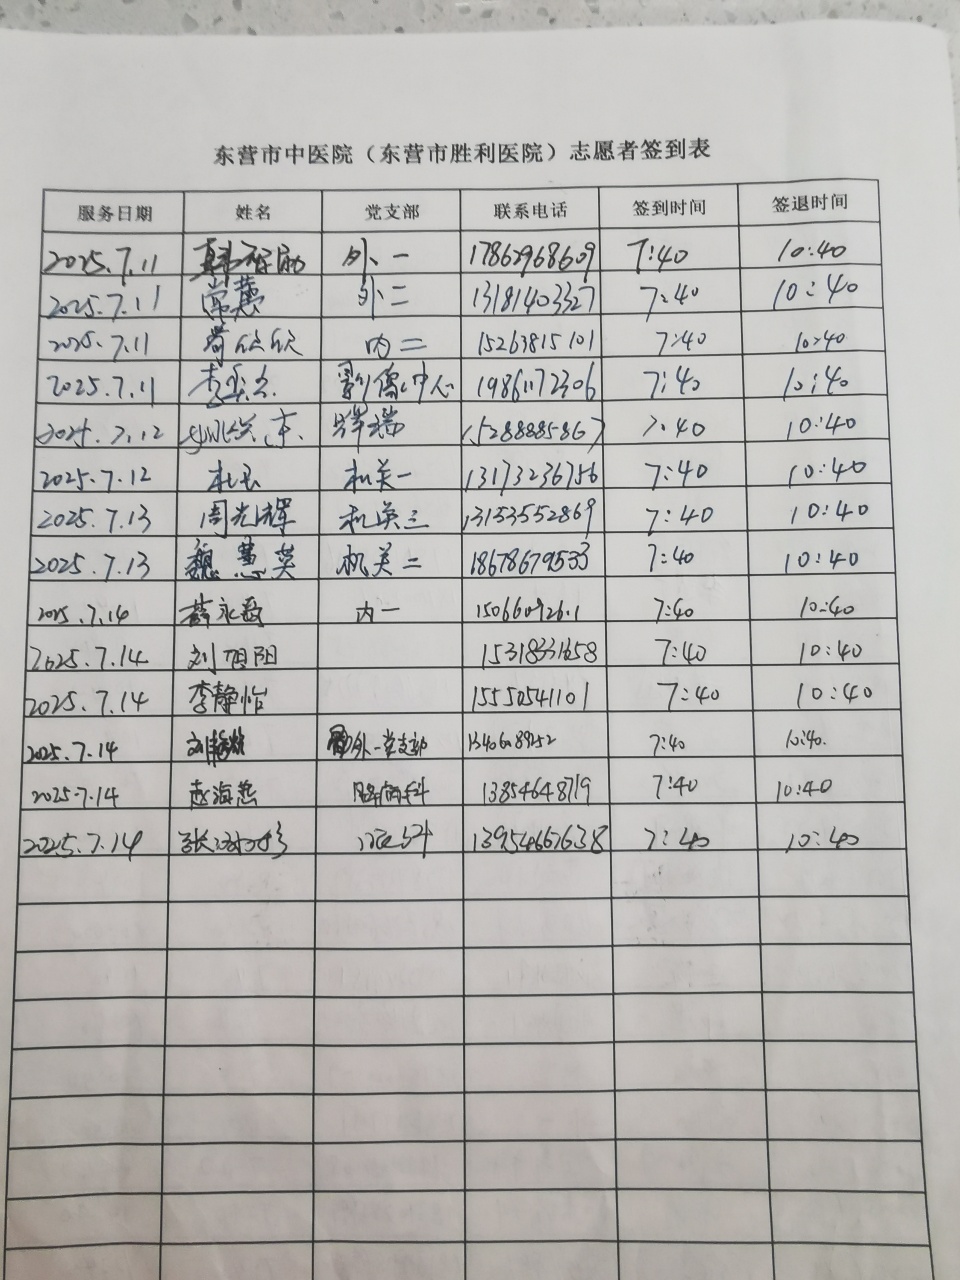 东营市中医院（东营市胜利医院）志愿者签到表
服务日期 姓名 党支部 联系电话 签到时间 签退时间
2025.7.11 外一 17862968609 7:40 10:40
2025.7.11 常慧 外二 13181403327 7:40 10:40
2025.7.11 苟欣欣 内二 15263815101 7:40 10:40
2025.7.11 影像中心 19861172306 7:40 10:40
2025.7.12 15288885867 7:40 10:40
2025.7.12 杜玉 机关一 13173236756 7:40 10:40
2025.7.13 周光辉 机关三 13153552869 7:40 10:40
2025.7.13 魏慧英 机关二 18678679533 7:40 10:40
2025.7.14 薛永 内一 15066092611 7:40 10:40
2025.7.14 刘旭阳 15318331658 7:40 10:40
2025.7.14 李静怡 15550541101 7:40 10:40
2025.7.14 刘 外一党支部 13406089252 7:40 10:40.
2025.7.14 赵海燕 脑病科 13854648719 7:40 10:40
2025.7.14 张 13954667638 7:40 10:40